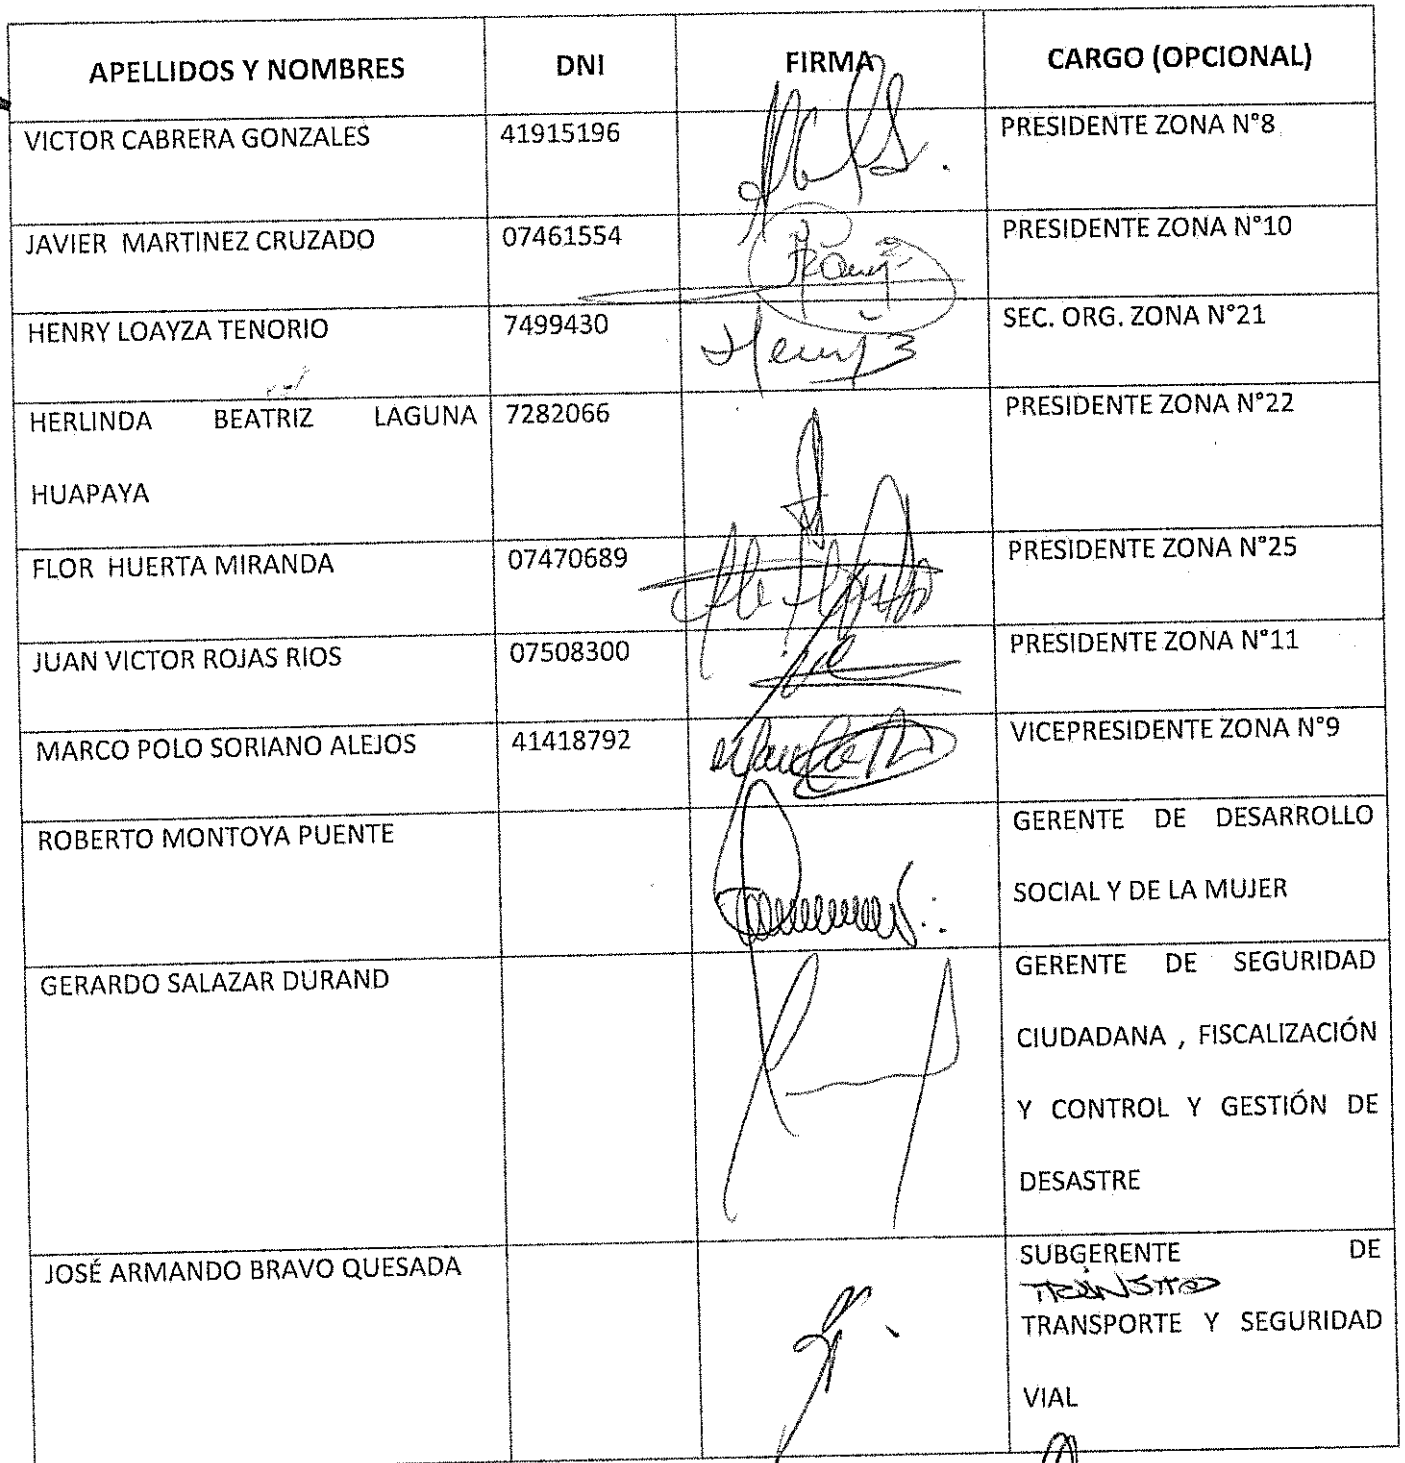 APELLIDOS Y NOMBRES DNI FIRMA CARGO (OPCIONAL)
VICTOR CABRERA GONZALES 41915196 PRESIDENTE ZONA N°8
JAVIER MARTINEZ CRUZADO 07461554 PRESIDENTE ZONA N°10
HENRY LOAYZA TENORIO 7499430 Henry SEC. ORG. ZONA N°21
HERLINDA BEATRIZ LAGUNA 7282066 PRESIDENTE ZONA N°22
HUAPAYA
FLOR HUERTA MIRANDA 07470689 PRESIDENTE ZONA N°25
JUAN VICTOR ROJAS RIOS 07508300 PRESIDENTE ZONA N°11
MARCO POLO SORIANO ALEJOS 41418792 VICEPRESIDENTE ZONA N°9
ROBERTO MONTOYA PUENTE GERENTE DE DESARROLLO
SOCIAL Y DE LA MUJER
GERARDO SALAZAR DURAND GERENTE DE SEGURIDAD
CIUDADANA , FISCALIZACIÓN
Y CONTROL Y GESTIÓN DE
DESASTRE
JOSÉ ARMANDO BRAVO QUESADA SUBGERENTE DE
TRÁNSITO
TRANSPORTE Y SEGURIDAD
VIAL